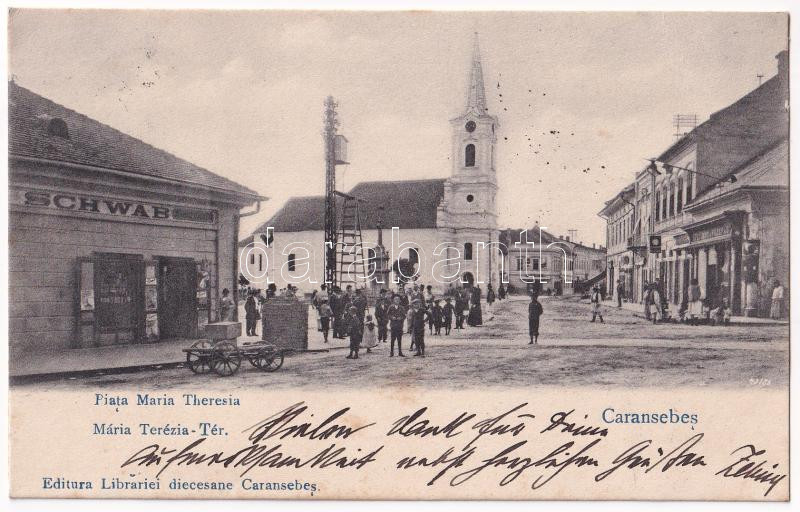 SCHWAB
darabanth
Piața Maria Theresia
Mária Terézia-Tér.
Caransebeș
Vielen dank für Deine
Aufmerksamkeit nebst herzlichen Grüßen
Editura Librariei diecesane Caransebeș.